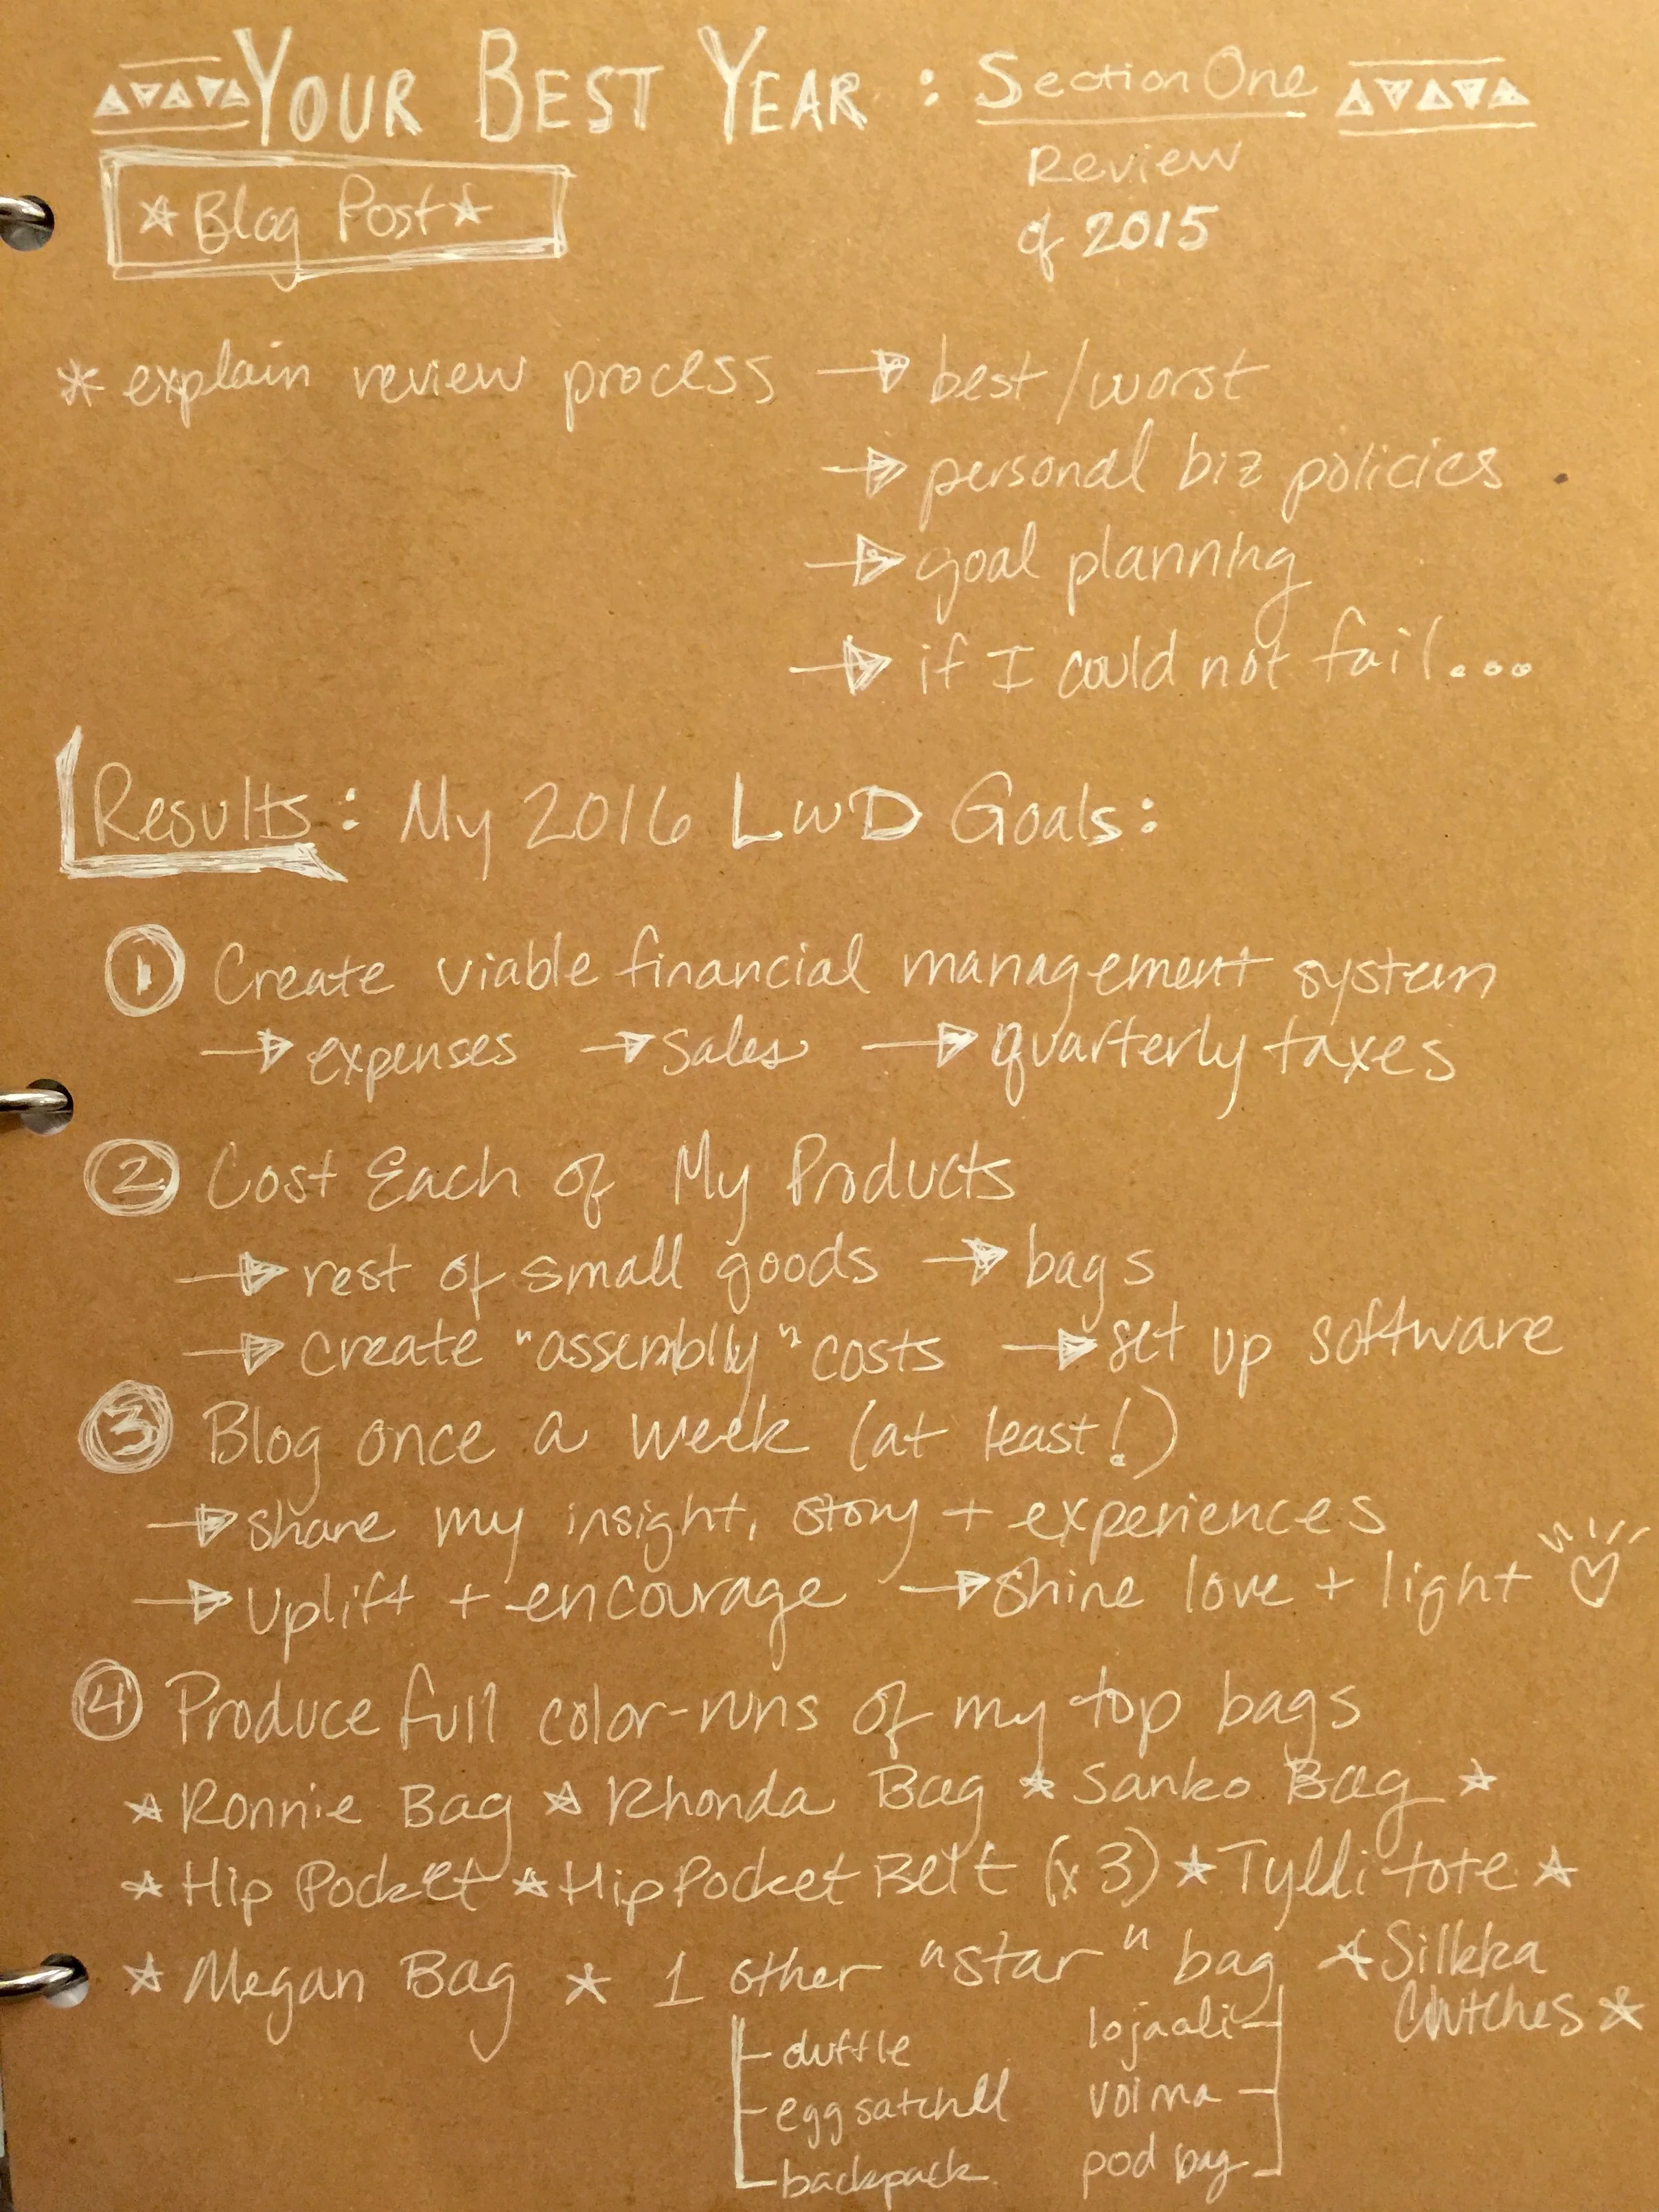 YOUR BEST YEAR : Section One
Review
of 2015
Blog Post
* explain review process → best/worst
→ personal biz policies
→ goal planning
→ if I could not fail...
Results: My 2016 LWD Goals:
1 Create viable financial management system
→ expenses → sales → quarterly taxes
2 Cost Each of My Products
→ rest of small goods → bags
→ create "assembly" costs → set up software
3 Blog once a week (at least!)
→ share my insight, story + experiences
→ uplift + encourage → shine love + light ♡
4 Produce full color-runs of my top bags
☆ Ronnie Bag ☆ Rhonda Bag ☆ Sanko Bag ☆
☆ Hip Pocket ☆ Hip Pocket Belt (x3) ☆ Tylli tote ☆
☆ Megan Bag ☆ 1 other "star" bag ☆ Silkka
Clutches ☆
duffle lojaali
egg satchell voima
backpack pod bag